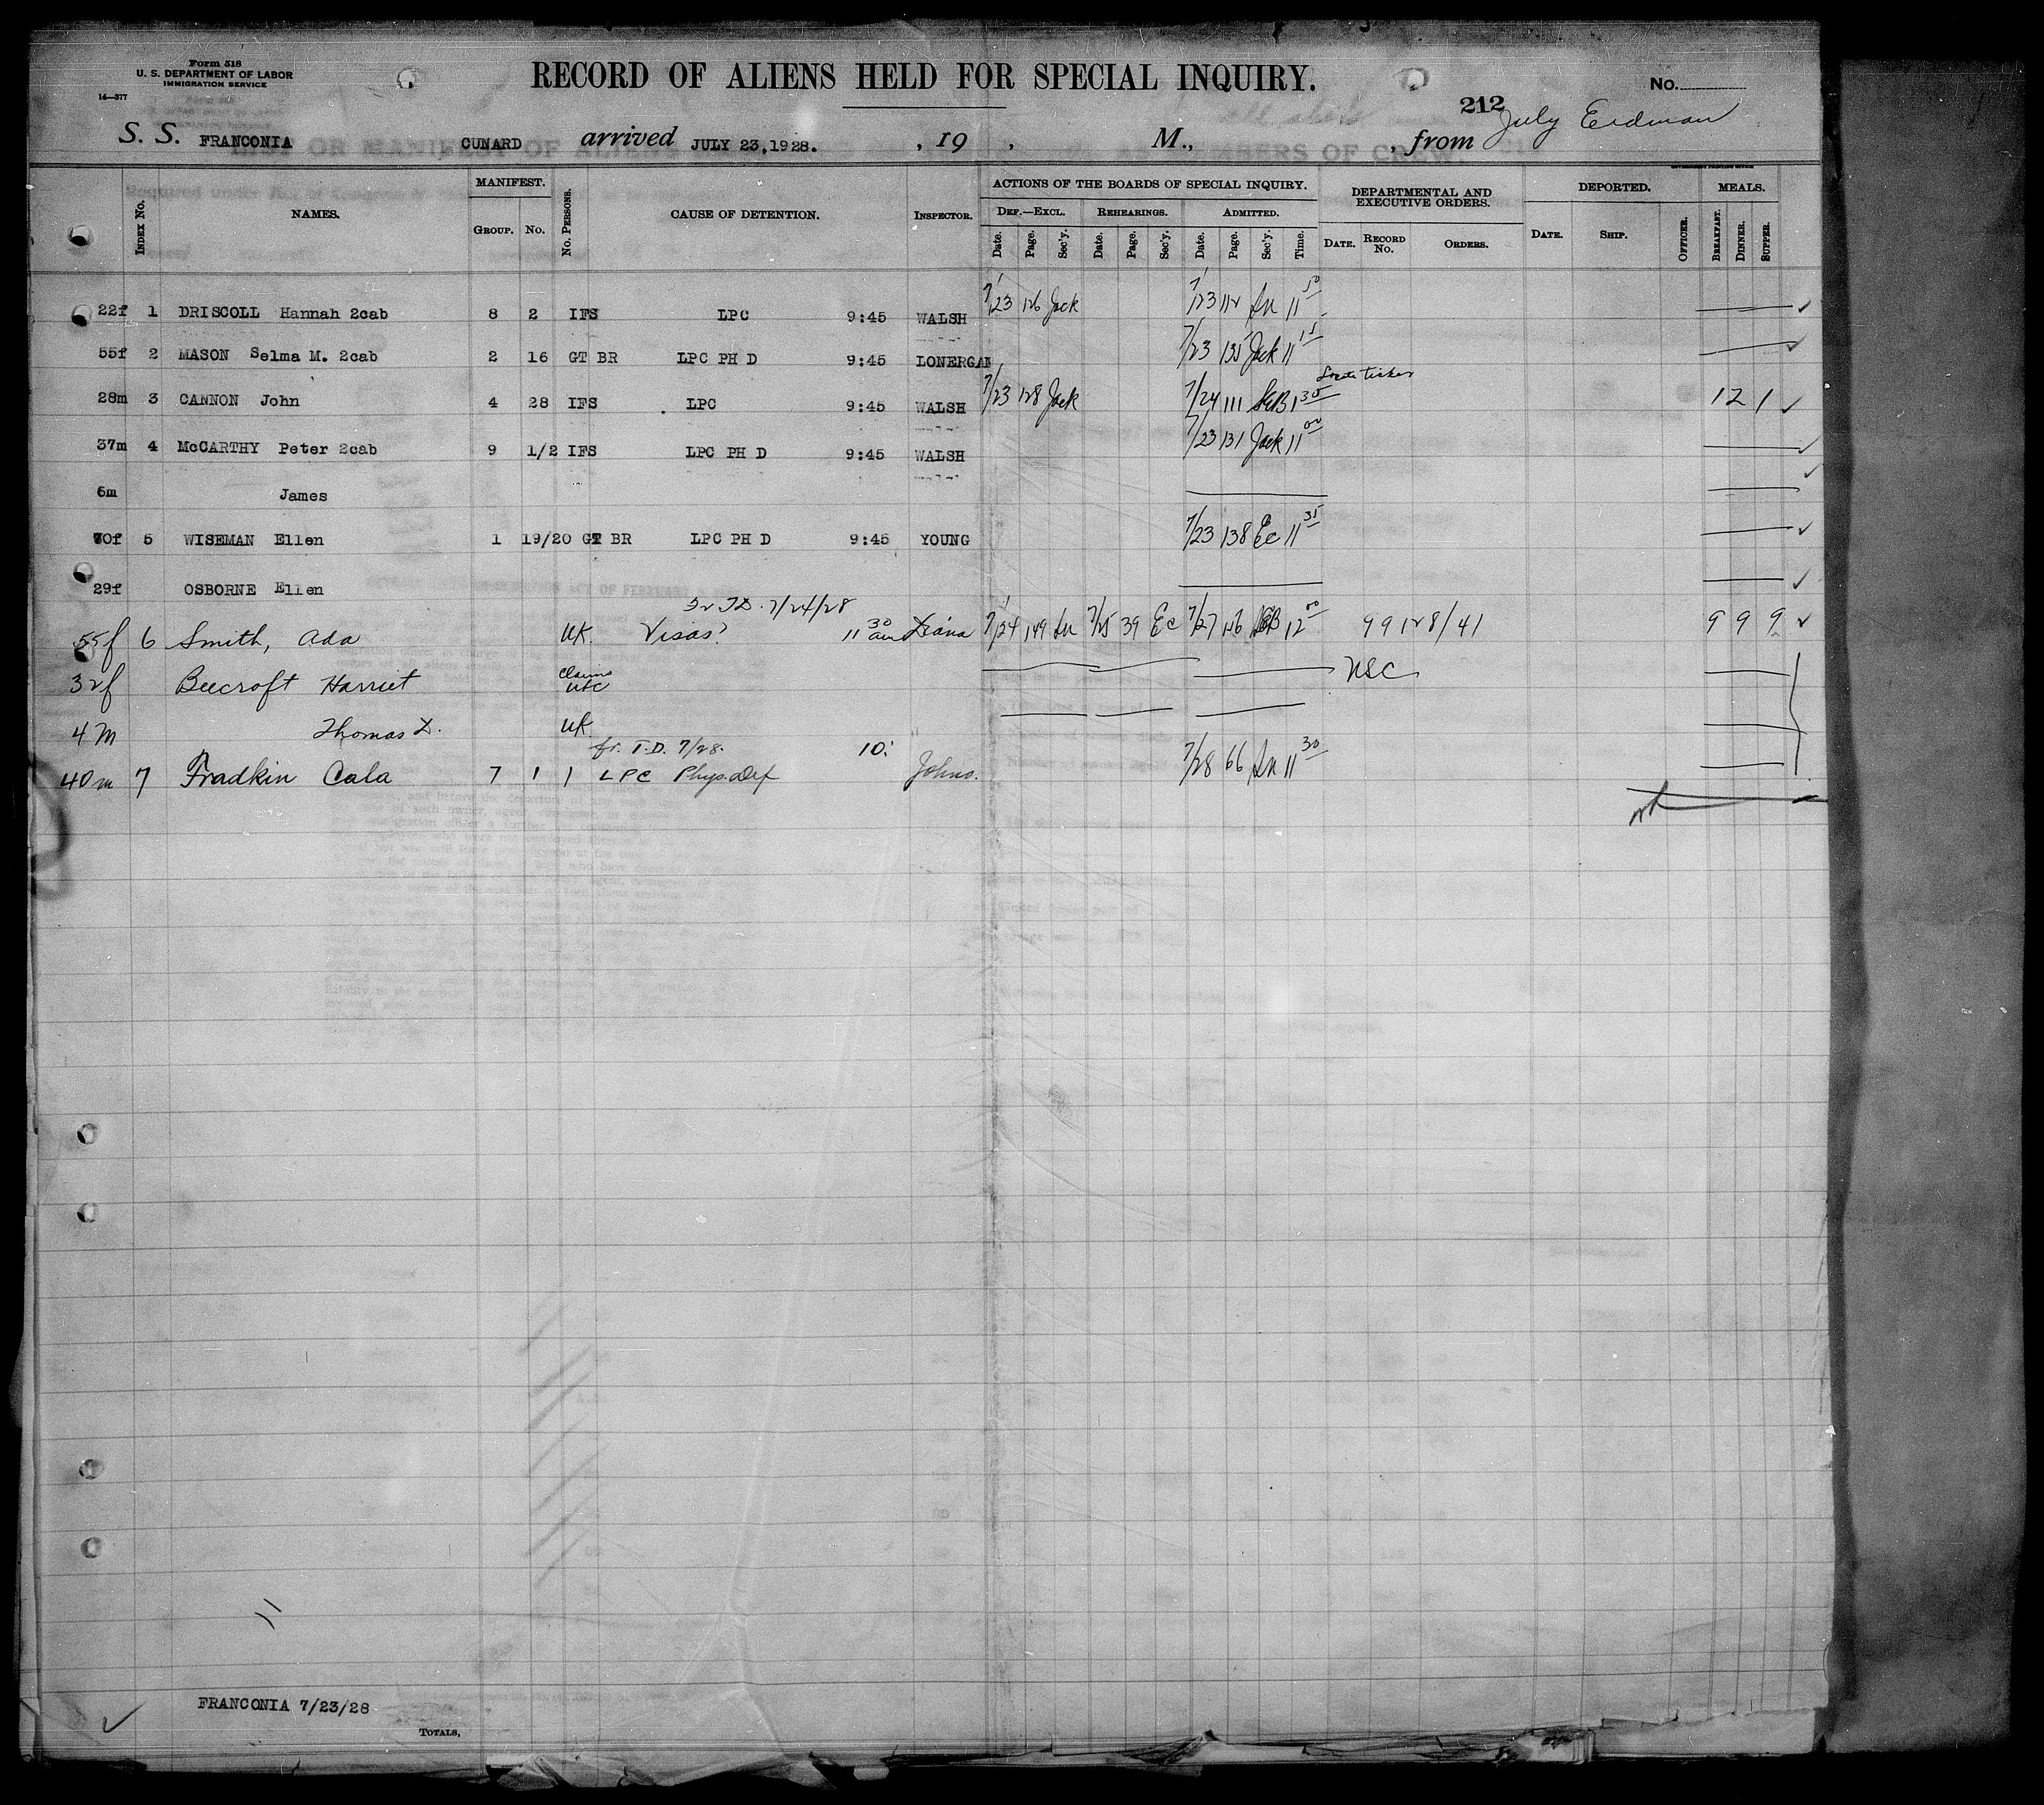 Form 518
U. S. DEPARTMENT OF LABOR
IMMIGRATION SERVICE
14—377
RECORD OF ALIENS HELD FOR SPECIAL INQUIRY.
No.
212
July Erdman
S. S. FRANCONIA CUNARD arrived JULY 23, 1928. , 19 , M., , from
INDEX No. NAMES. MANIFEST. GROUP. No. No. PERSONS. CAUSE OF DETENTION. INSPECTOR. ACTIONS OF THE BOARDS OF SPECIAL INQUIRY. DEPARTMENTAL AND EXECUTIVE ORDERS. DEPORTED. MEALS.
DEF.—EXCL. REHEARINGS. ADMITTED.
Date. Page. Sec'y. Date. Page. Sec'y. Date. Page. Sec'y. Time. DATE. RECORD No. ORDERS. DATE. SHIP. OFFICER. BREAKFAST. DINNER. SUPPER.
22f 1 DRISCOLL Hannah 2cab 8 2 IFS LPC 9:45 WALSH 7/23 126 Jack 7/23 112 11 50
55f 2 MASON Selma M. 2cab 2 16 GT BR LPC PH D 9:45 LONERGAN 7/23 135 Jack 11 15
28m 3 CANNON John 4 28 IFS LPC 9:45 WALSH 7/23 128 Jack 7/24 111 1 35 1 2 1
37m 4 McCARTHY Peter 2cab 9 1/2 IFS LPC PH D 9:45 WALSH 7/23 131 Jack 11 00
6m James
70f 5 WISEMAN Ellen 1 19/20 GT BR LPC PH D 9:45 YOUNG 7/23 138 EC 11 35
29f OSBORNE Ellen
T.D. 7/24/28
55f 6 Smith, Ada UK. Visas? 11 30 am 7/24 149 7/25 39 EC 7/27 126 12 00 99128/41 9 9 9
32f Beecroft Harriet claims USC USC
4m Thomas UK.
fr. T.D. 7/28. 10:
40m 7 Fradkin Cala 7 1 1 LPC Phys. Def Johns. 7/28 66 11 30
FRANCONIA 7/23/28
TOTALS,